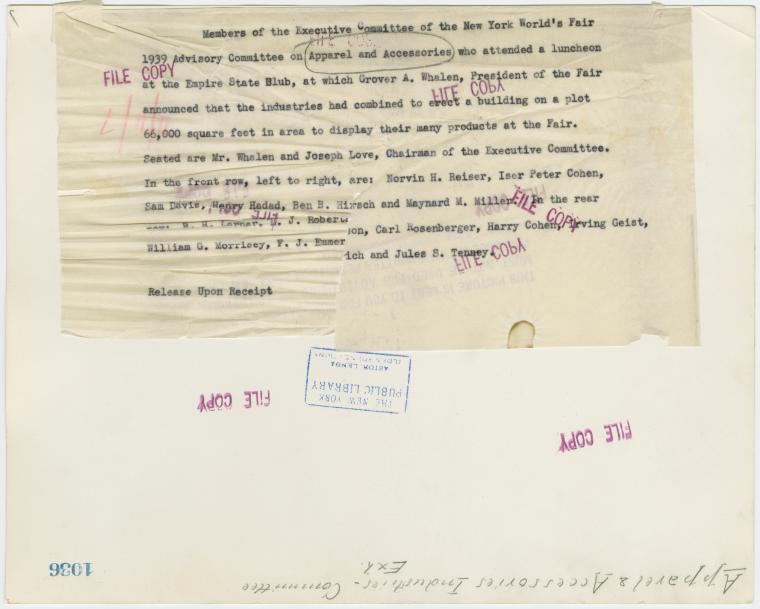 Members of the Executive Committee of the New York World's Fair
1939 Advisory Committee on Apparel and Accessories who attended a luncheon
at the Empire State Blub, at which Grover A. Whalen, President of the Fair
announced that the industries had combined to erect a building on a plot
66,000 square feet in area to display their many products at the Fair.
Seated are Mr. Whalen and Joseph Love, Chairman of the Executive Committee.
In the front row, left to right, are: Norvin H. Reiser, Iser Peter Cohen,
Sam Davis, Henry Hadad, Ben B. Hirsch and Maynard M. Miller. In the rear
H. Lerner, J. Roberts
son, Carl Rosenberger, Harry Cohen, Irving Geist,
William G. Morrisey, F. J. Emmer
rich and Jules S. Tenney.
Release Upon Receipt
FILE COPY
FILE COPY
FILE COPY
FILE COPY
FILE COPY
FILE COPY
FILE COPY
FILE COPY
THE NEW YORK
PUBLIC LIBRARY
ASTOR LENOX
TILDEN FOUNDATIONS
Apparel & Accessories Industries - Committee
Exh.
1036